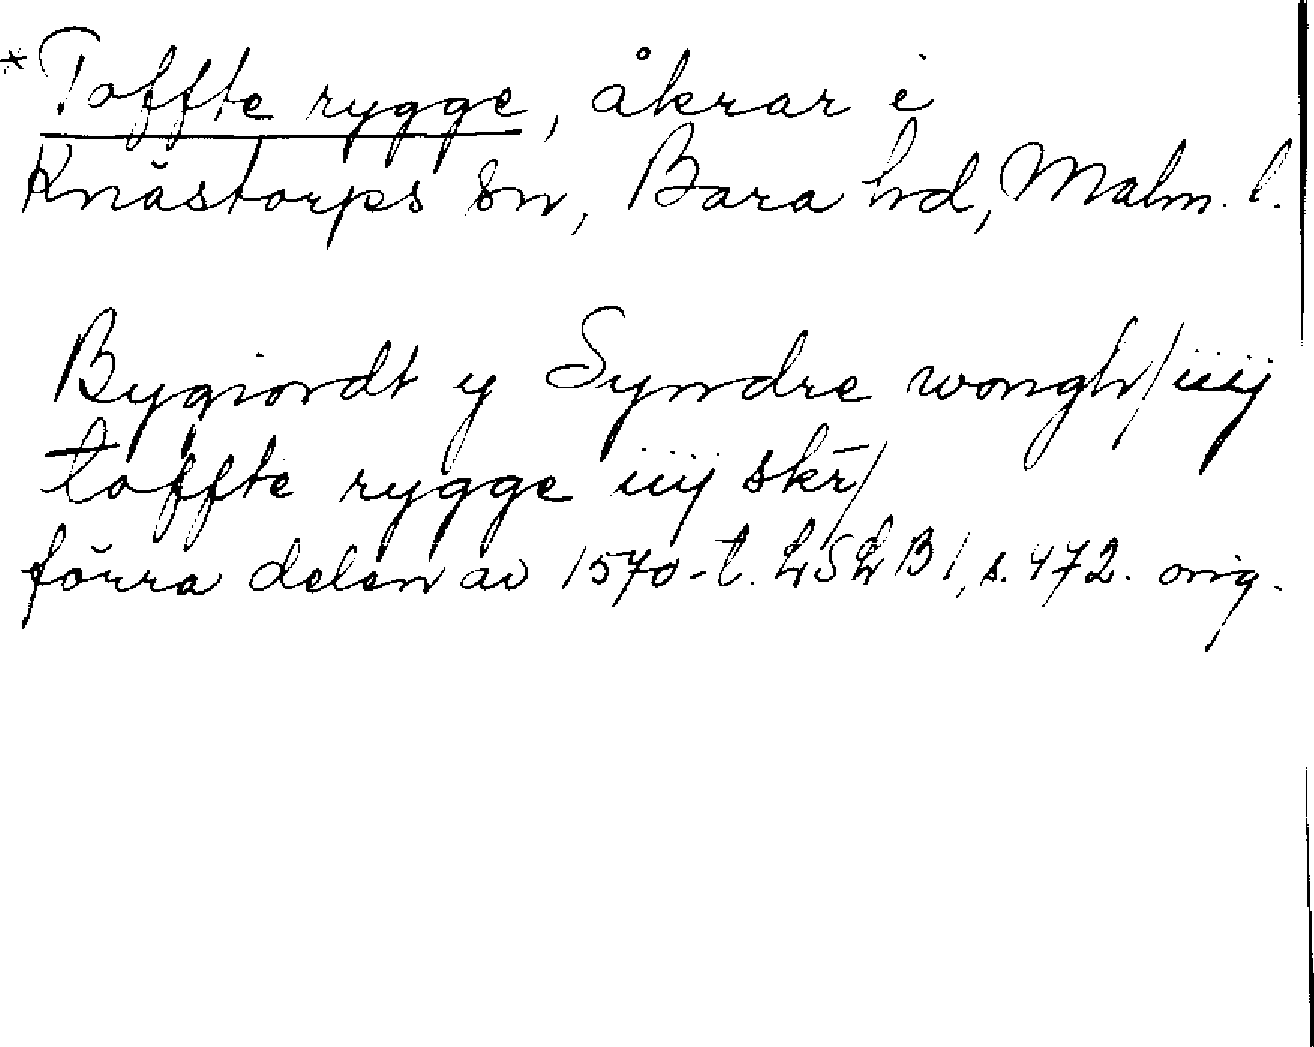 * Toffte rygge, åkrar i
Knästorps sn, Bara hd, Malm. l.
Bygiordt y Syndre wongh/ iiij
toffte rygge iiij skr̄/
förra delen av 1570-t. LSLB 1, s. 472. orig.